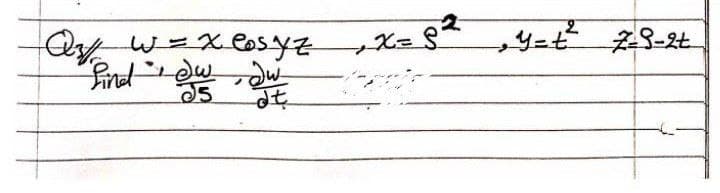 Q3/ w = x cos yz , x = s² , y = t² z = s - 2t
find : ∂w/∂s , ∂w/∂t